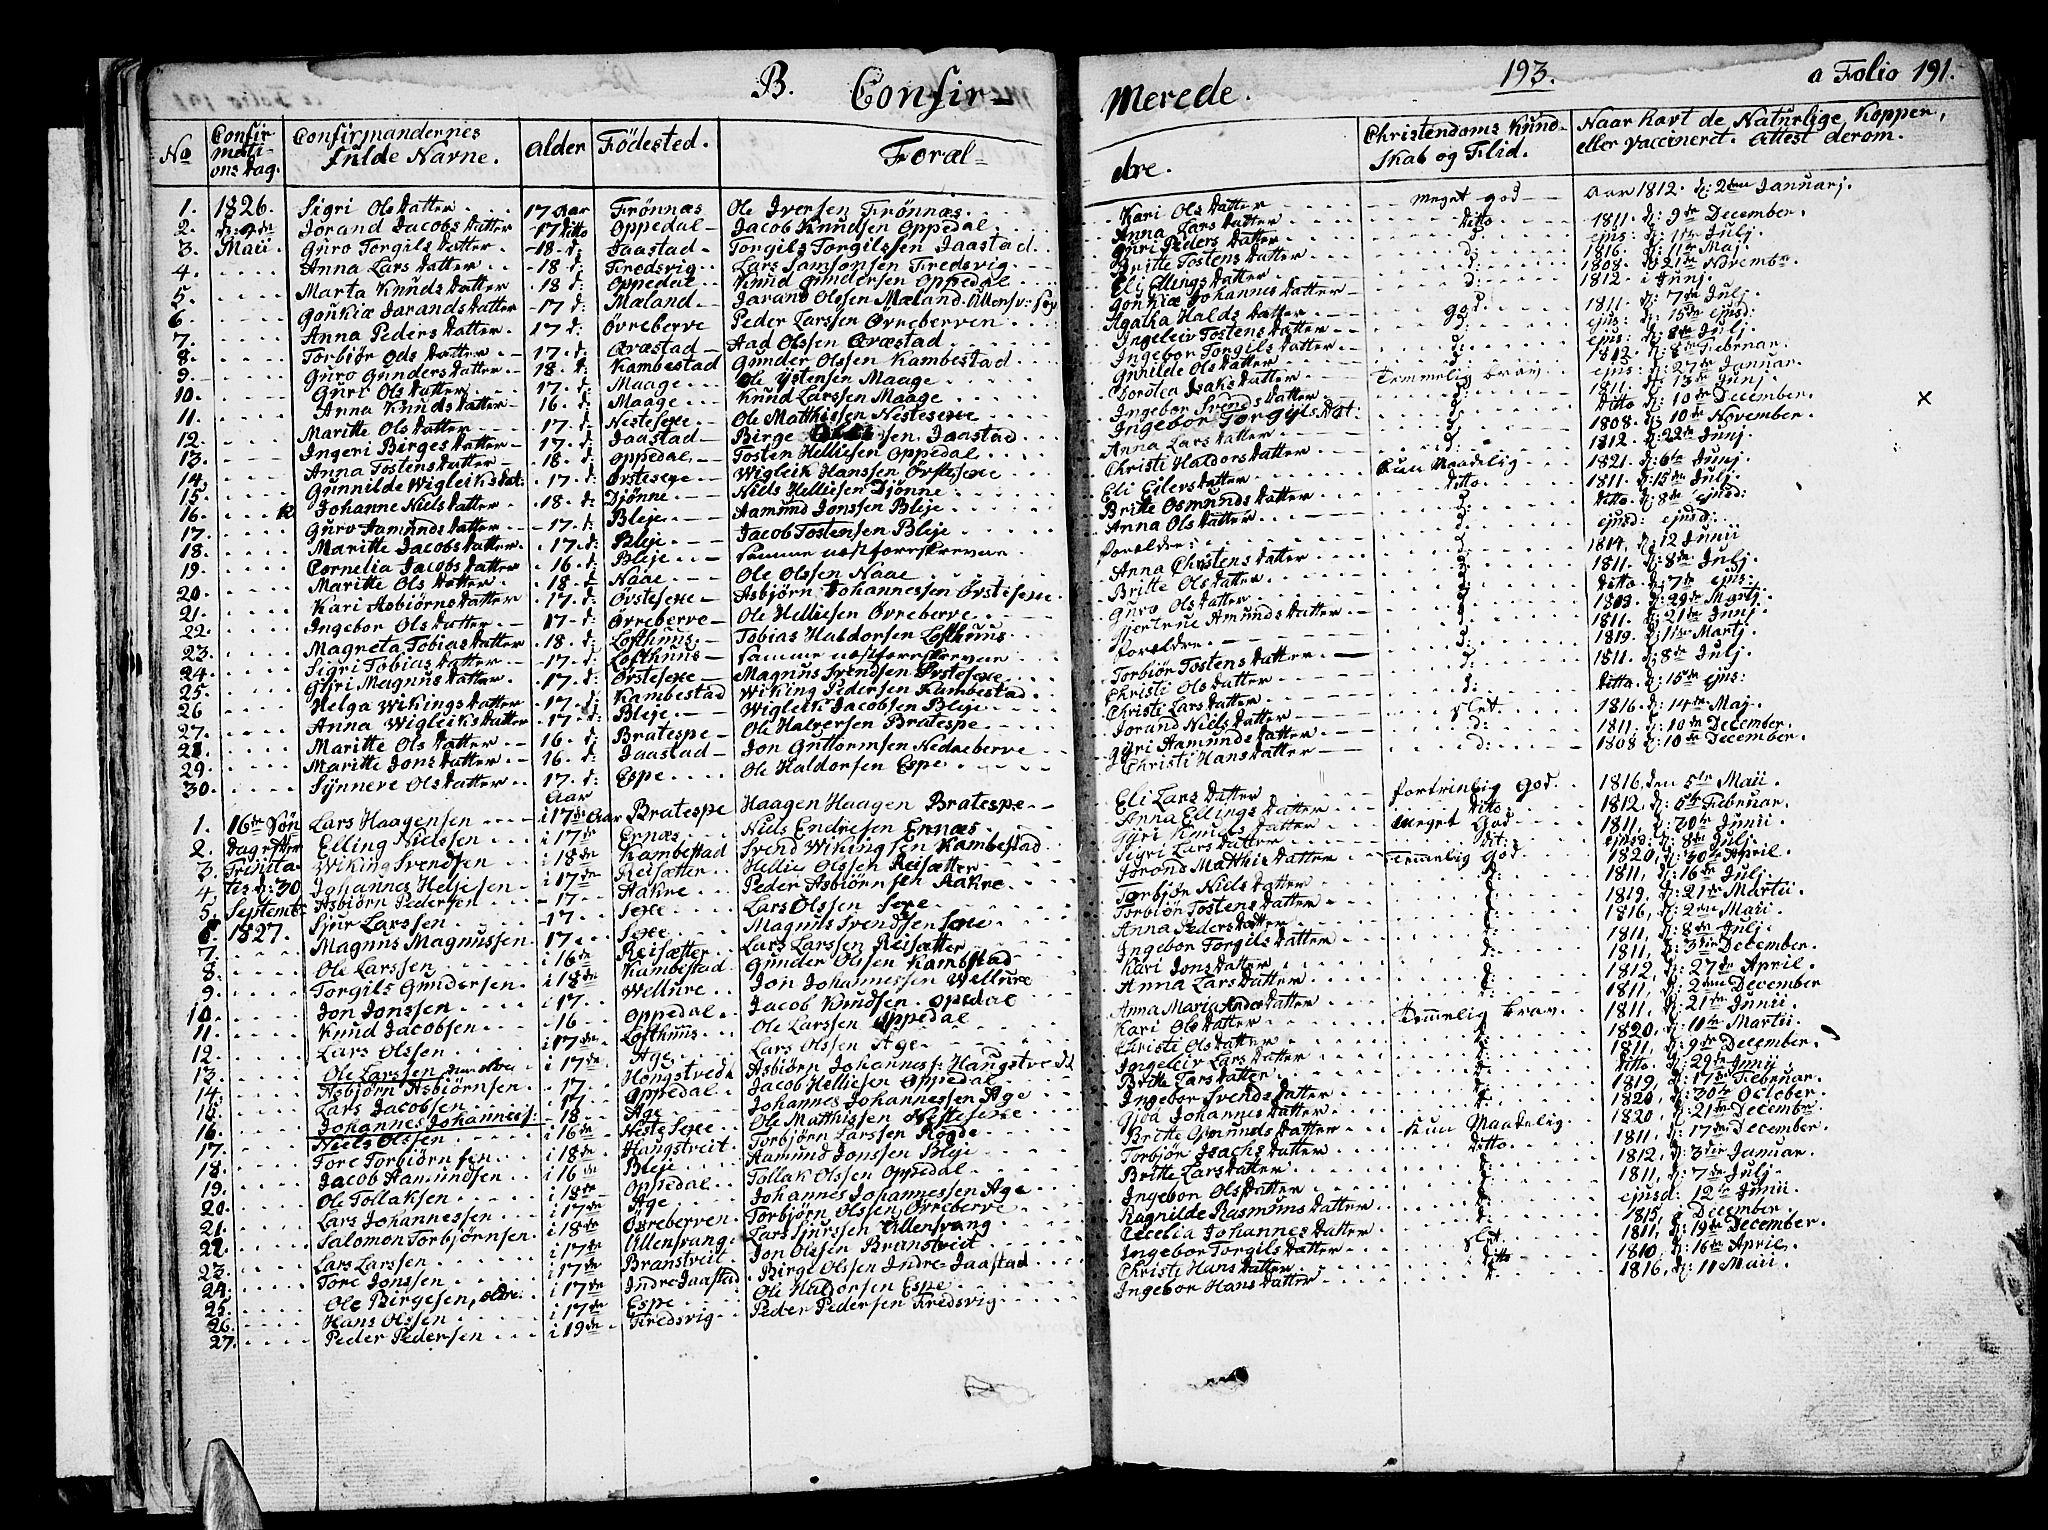 B. Confir- Merede. 193. a Folio 191.
No Confirmationsdag. Confirmandernes Fulde Navne. Alder Födested. Foræl- dre. Christendoms Kundskab og Flid. Naar havt de Naturlige Kopper, eller vaccineret. Attest derom.
1. 1826. Sigri Olsdatter 17 Aar Frönnæs Ole Iversen Frönnæs. Kari Olsdatter meget god Aar 1812. d: 2den Januarj.
2. d: 9de Jorand Jacobsdatter 17 ditto Oppedal Jacob Knudsen Oppedal Anna Larsdatter ditto 1811. d: 9de December.
3. Maii Guro Torgilsdatter 18 d: Jaastad Torgils Torgilssen Jaastad. Guri Pedersdatter d: ejus: d: 11te Julj.
4. Anna Larsdatter 18 d: Fredsvig Lars Samsonsen Fredsvig. Britte Tostensdatter d: 1816. d: 11te Maj.
5. Marta Knudsdatter 18 d: Oppedal Knud Gundersen Oppedal Eli Ellingsdatter d: 1808. d: 21de Novembr.
6. Gunkiæ Jarandsdatter 17 d: Mæland Jarand Olssen Mæland Gunkiæ Johannesdatter 1812. i Junj.
7. Anna Pedersdatter 17 d: Övreberve Peder Larssen Övreberven Agatha Haldsdatter god 1811. d: 7de Julj.
8. Torbjör Odsdatter 17. d: Aræstad Aad Olssen Aræstad Ingeleiv Tostensdatter d: ejus: d: 15de ejusd:
9. Guro Gundersdatter 18. d: Kambestad Gunder Olssen Kambestad. Ingebor Torgilsdatter d: ejus: d: 8de Julj.
10. Guri Olsdatter 17. d: Maage Ole Ystensen Maage Gunilde Olsdatter d: 1812. d: 8de Februar.
11. Anna Knudsdatter 16. d: Maage Knud Larssen Maage Dorotea Isaksdatter Temmelig brav ejus: d: 27de Januar.
12. Maritte Olsdatter 17. d: Nestesexe Ole Matthissen Nestesexe Ingebor Svendsdatter d: 1811. d: 13de Junj.
13. Ingeri Birgesdatter 17. d: Jaastad Birge Jaastad Ingebor Torgilsdat: d: ditto d: 10de December.
14. Anna Tostensdatter 18. d: Oppedal Tosten Helliesen Oppedal Anna Larsdatter d: 1808. d: 10de November.
15. Gunnilde Wigleiksdat: 17. d: Örstesexe Wigleik Hanssen Örstesexe Christi Haldorsdatter d: 1812. d: 22de Junj.
16. Johanne Nielsdatter 18. d: Djönne Niels Helliesen Djönne Eli Eilersdatter Kun Maadelig 1821. d: 6te Junj.
17. Guro Aamundsdatter 17. d: Bleje Aamund Jonssen Bleje Britte Osmundsdatter ditto 1811. d: 15de Julj.
18. Maritte Jacobsdatter 17. d: Bleje Jacob Tostensen Bleje Anna Olsdatter d: ditto d: 8de ejusd:
19. Cornelia Jacobsdatter 16. d: Bleje samme næstforeskrevne forældre: d: ejusd: ejusd:
20. Maritte Olsdatter 18. d: Naae Ole Olssen Naae Anna Christensdatter d: 1814. d: 12 Junii
21. Kari Asbiörnsdatter 17. d: Örstesexe Asbjörn Johannessen Örstesexe Britte Olsdatter d: 1811. d: 8de Julj.
22. Ingebor Olsdatter 17. d: Övreberve Ole Helliesen Övreberve Guro Olsdatter d: ditto. d: 7de ejus:
23. Magreta Tobiasdatter 18. d: Lofthuus Tobias Haldorsen Lofthuus Gjertrue Amundsdatter d: 1803. d: 29de Martj.
24. Sigri Tobiasdatter 17. d: Lofthuus samme næstforeskrevne forældre d: 1811. d: 21de Junj.
25. Gyri Magnusdatter 17. d: Örstesexe Magnus Svendsen Örstesexe Torbiör Tostensdatter d: 1819. d: 11te Martj.
26 Helga Wikingsdatter 17. d: Kambestad Wiking Pedersen Kambestad Christi Olsdatter d: 1811. d: 8de Julj.
27. Anna Wigleiksdatter 17. d: Bleje Wigleik Jacobsen Bleje Christi Larsdatter d: ditto. d: 15de ejus:
28. Maritte Olsdatter 16. d: Bratespe Ole Halversen Bratespe Jorand Nielsdatter slet. 1816. d: 14de Maj.
29. Maritte Jonsdatter 16. d: Jaastad Jon Guttormsen Nedreberve Gyri Aamundsdatter d: 1811. d: 10de December.
30. Synneve Olsdatter 17. d: Espe Ole Haldorsen Espe Christi Hansdatter d: 1808 d: 10de December.
Aar
1. 16de Søn Lars Haagensen i 17de Aar Bratespe Haagen Haagen Bratespe Eli Larsdatter fortrinlig God. 1816, den 5te Maii.
2. dag efter Elling Nielssen i 17de Ernæs Niels Endresen Ernæs. Anna Ellingsdatter ditto 1812, d: 6te Februar.
3. Trinita- Wiking Svendsen i 18de Kambestad Svend Wikingsen Kambestad Gyri datter Meget God 1811, d: 30te Junii.
4 tes d: 30 Johannes Heljesen i 17de Reisæter Hellie Olssen Reisætter Sigri Larsdatter dit: ejusd: d: 8de Julj.
5. Septemb: Asbiörn Pedersen 17 Aakre Peder Asbiörnsen Aakre. Jorond Matthisdatter Temmelig God 1820, d: 30te April
6 1827. Sjur Larssen 17 Sexe Lars Olssen Sexe Torbjör Nielsdatter d: 1811, d: 16de Julj.
7. Magnus Magnussen 17 Sexe Magnus Svendsen Sexe Torbiör Tostensdatter d: 1819. d: 21de Martii.
8. Ole Larssen i 16de Reisætter Lars Larssen Reisætter Anna Pedersdatter d: 1816, d: 2den Maii.
9. Torgils Gundersen i 18de Kambestad Gunder Olssen Kambstad Ingebor Torgilsdatter d: 1811, d: 8de Julj.
10. Jon Jonssen i 17 Wellure Jon Johannessen Wellure Kari Jonsdatter d: 1811, d: 3die December.
11. Knud Jacobsen 16 Oppedal Jacob Knudsen Opedal Anna Larsdatter d: 1812, d: 27de April.
12. Lars Olssen i 17de Lofthuus Ole Larssen Oppedal Anna Maria Andersdatter d: 1811, d: 2den December
13. Ole Larssen i 17de Age Lars Olssen Age Kari Olsdatter Temmelig brav. 1811, d: 21de Junii.
14. Asbjörn Asbiörnsen 17 Hongstvedt Asbjörn Johannes: Haugstvedt Christi Olsdatter d: 1820, d: 11te Martii.
15. Lars Jacobsen 17 Oppedal Jacob Helliesen Oppedal Ingeleiv Larsdatter d: 1811, d: 9de December.
16. Johannes Johannes: 18 Age Johannes Johannessen Age Britte Larsdatter d: ditto. d: 29de Junii
17. Niels Olssen i 16de Neste Sexe Ole Matthissen Nestesexe Ingebor Svendsdatter d: 1819, d: 17de Februar.
18. Tore Torbiörnsen i 18de Hangstveit Torbjörn Larssen Rogde Gjöa Johannesdatter d: 1820, d: 30te October.
19. Jacob Aamundsen i 16de Bleje Aamund Jonssen Bleje Britte Osmundsdatter Kun Maadelig 1820 d: 21de December
20. Ole Tollaksen i 18de Oppedal Tollak Olssen Oppedal Torbjör Isachsdatter ditto. 1811, d: 17de December.
21. Lars Johannessen i 17de Age Johannes Johannessen Age Britte Larsdatter d: 1812, d: 3die Januar.
22. Salomon Torbjörnsen i 18de Övreberven Torbjörn Olssen Övreberve Ingebor Olsdatter d: 1811, d: 7de Julj.
23. Lars Larssen i 17de Ullensvang Lars Sjurssen Ullensvang Ragnilde Rasmusdatter d: ejusd: 12te Junii.
24. Tore Jonssen i 17de Branstveit Jon Olssen Branstveit Cecelia Johannesdatter d: 1815, i December.
25. Ole Birgesen, ældre i 17de Indre Jaastad Birge Olssen Indre Jaastad Ingebor Torgilsdatter slet. 1811, d: 19de December.
26. Hans Olssen i 17de Espe Ole Haldorsen Espe Christi Hansdatter ditto 1810, d: 16de April.
27. Peder Pedersen i 19de Fredsvig Peder Pedersen Fredsvig Ingebor Hansdatter d: 1816, d: 11 Maii.